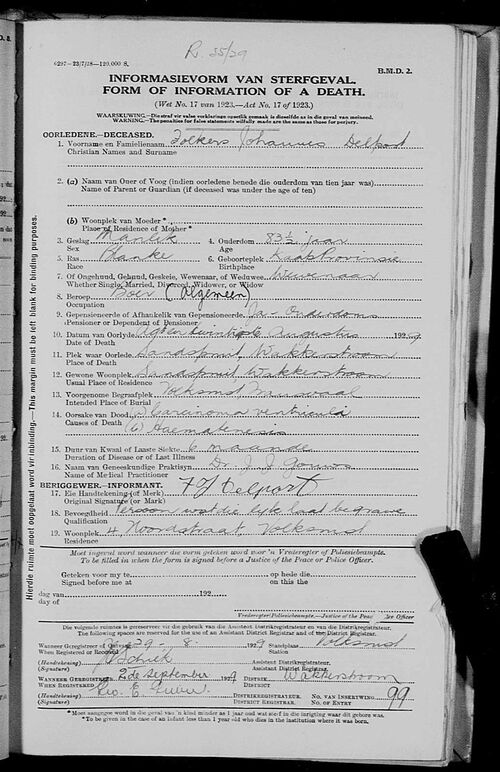 R. 35/29
6297—23/7/28—120,000 S.
B.M.D. 2.
INFORMASIEVORM VAN STERFGEVAL.
FORM OF INFORMATION OF A DEATH.
(Wet No. 17 van 1923.—Act No. 17 of 1923.)
WAARSKUWING.—Die straf vir valse verklarings opsetlik gemaak is dieselfde as in die geval van meineed.
WARNING.—The penalties for false statements wilfully made are the same as those for perjury.
OORLEDENE.—DECEASED.
1. Voorname en Familienaam Folkers Johannes Delport
Christian Names and Surname
2. (a) Naam van Ouer of Voog (indien oorledene benede die ouderdom van tien jaar was)
Name of Parent or Guardian (if deceased was under the age of ten)
(b) Woonplek van Moeder*
Place of Residence of Mother*
3. Geslag Manlik 4. Ouderdom 83½ jaar
Sex Age
5. Ras Blanke 6. Geboorteplek Kaap Provinsie
Race Birthplace
7. Of Ongehuud, Gehuud, Geskeie, Wewenaar, of Weduwee Wewenaar
Whether Single, Married, Divorced, Widower, or Widow
8. Beroep Boer (Algemeen)
Occupation
9. Gepensioeneerde of Afhankelik van Gepensioeneerde Ja - Ouderdoms
Pensioner or Dependent of Pensioner
10. Datum van Oorlyde Agten twintigste Augustus 1929
Date of Death
11. Plek waar Oorlede Sandspruit, Wakkerstroom
Place of Death
12. Gewone Woonplek Sandspruit Wakkerstroom
Usual Place of Residence
13. Voorgenome Begrafplek Volksrust
Intended Place of Burial
14. Oorsake van Dood Carcinoma ventriculi
Causes of Death (b) Haematemesis
15. Duur van Kwaal of Laaste Siekte 6 maande
Duration of Disease or of Last Illness
16. Naam van Geneeskundige Praktisyn Dr. J. J. Gouws
Name of Medical Practitioner
BERIGGEWER.—INFORMANT.
17. Sie Handtekening (of Merk) F J Delport
Original Signature (or Mark)
18. Bevoegdheid Persoon wat die lyk laat begrawe
Qualification
19. Woonplek 4, Noordstraat, Volksrust
Residence
Moet ingevul word wanneer die vorm geteken word voor 'n Vrederegter of Poliesiebeampte.
To be filled in when the form is signed before a Justice of the Peace or Police Officer.
Geteken voor my te op hede die
Signed before me at on this the
dag van 192
day of
Vrederegter/Poliesiebeampte.—Justice of the Peace
Die volgende ruimtes is gereserveer vir die gebruik van die Assistent Distriksregistrateur en van die Distriksregistrateur.
The following spaces are reserved for the use of an Assistant District Registrar and of the District Registrar.
Wanneer Geregistreer of Ontvang 29 - 8 1929 Standplaas Volksrust
When Registered or Received Station
(Handtekening) Assistent Distriksregistrateur.
(Signature) Assistant District Registrar.
WANNEER GEREGISTREER 2de September 1929 DISTRIK Wakkerstroom
WHEN REGISTERED DISTRICT
(Handtekening) Geo. E. DISTRIKSREGISTRATEUR. No. VAN INSKRYWING 99
(Signature) DISTRICT REGISTRAR. No. OF ENTRY
*Moet aangegee word in die geval van 'n kind minder as 1 jaar oud wat sterf in die inrigting waar dit gebore was.
*To be given in the case of an infant less than 1 year old who dies in the institution where it was born.
Hierdie ruimte moet oopgelaat word vir inbinding.—This margin must be left blank for binding purposes.